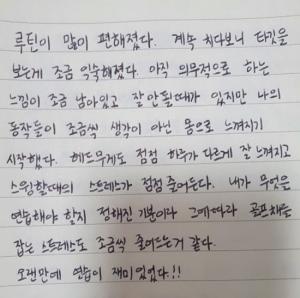 루틴이 많이 편해졌다. 계속 치다보니 타깃을
보는게 조금 익숙해졌다. 아직 의무적으로 하는
느낌이 조금 남아있고 잘 안될때가 있지만 나의
동작들이 조금씩 생각이 아닌 몸으로 느껴지기
시작했다. 헤드무게도 점점 하루가 다르게 잘 느껴지고
스윙할때의 스트레스가 점점 줄어든다. 내가 무엇을
연습해야 할지 정해진 기분이라 그에따라 골프채를
잡는 스트레스도 조금씩 줄어드는거 같다.
오랜만에 연습이 재미있었다!!